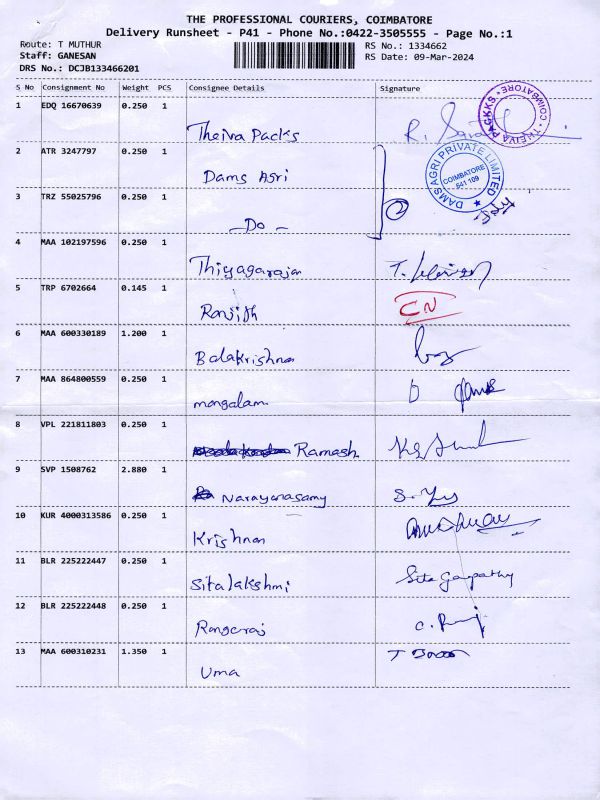 THE PROFESSIONAL COURIERS, COIMBATORE
Delivery Runsheet - P41 - Phone No.:0422-3505555 - Page No.:1
Route: T MUTHUR
RS No.: 1334662
Staff: GANESAN
RS Date: 09-Mar-2024
DRS No.: DCJB133466201
S No Consignment No Weight PCS Consignee Details Signature
1 EDQ 16670639 0.250 1
Theiva Packs
THEIVA PACKKS * COIMBATORE *
2 ATR 3247797 0.250 1
Dams Agri
DAMS AGRI PRIVATE LIMITED
COIMBATORE
641 109
3 TRZ 55025796 0.250 1
- Do -
2
4 MAA 102197596 0.250 1
Thiyagarajan
5 TRP 6702664 0.145 1
Ranjith
CN
6 MAA 600330189 1.200 1
Balakrishnan
7 MAA 864800559 0.250 1
mangalam
8 VPL 221811803 0.250 1
Ramash
9 SVP 1508762 2.880 1
Narayanasamy
10 KUR 4000313586 0.250 1
Krishnan
11 BLR 225222447 0.250 1
Sitalakshmi
Sita Ganpathy
12 BLR 225222448 0.250 1
Rangaraj
13 MAA 600310231 1.350 1
Uma